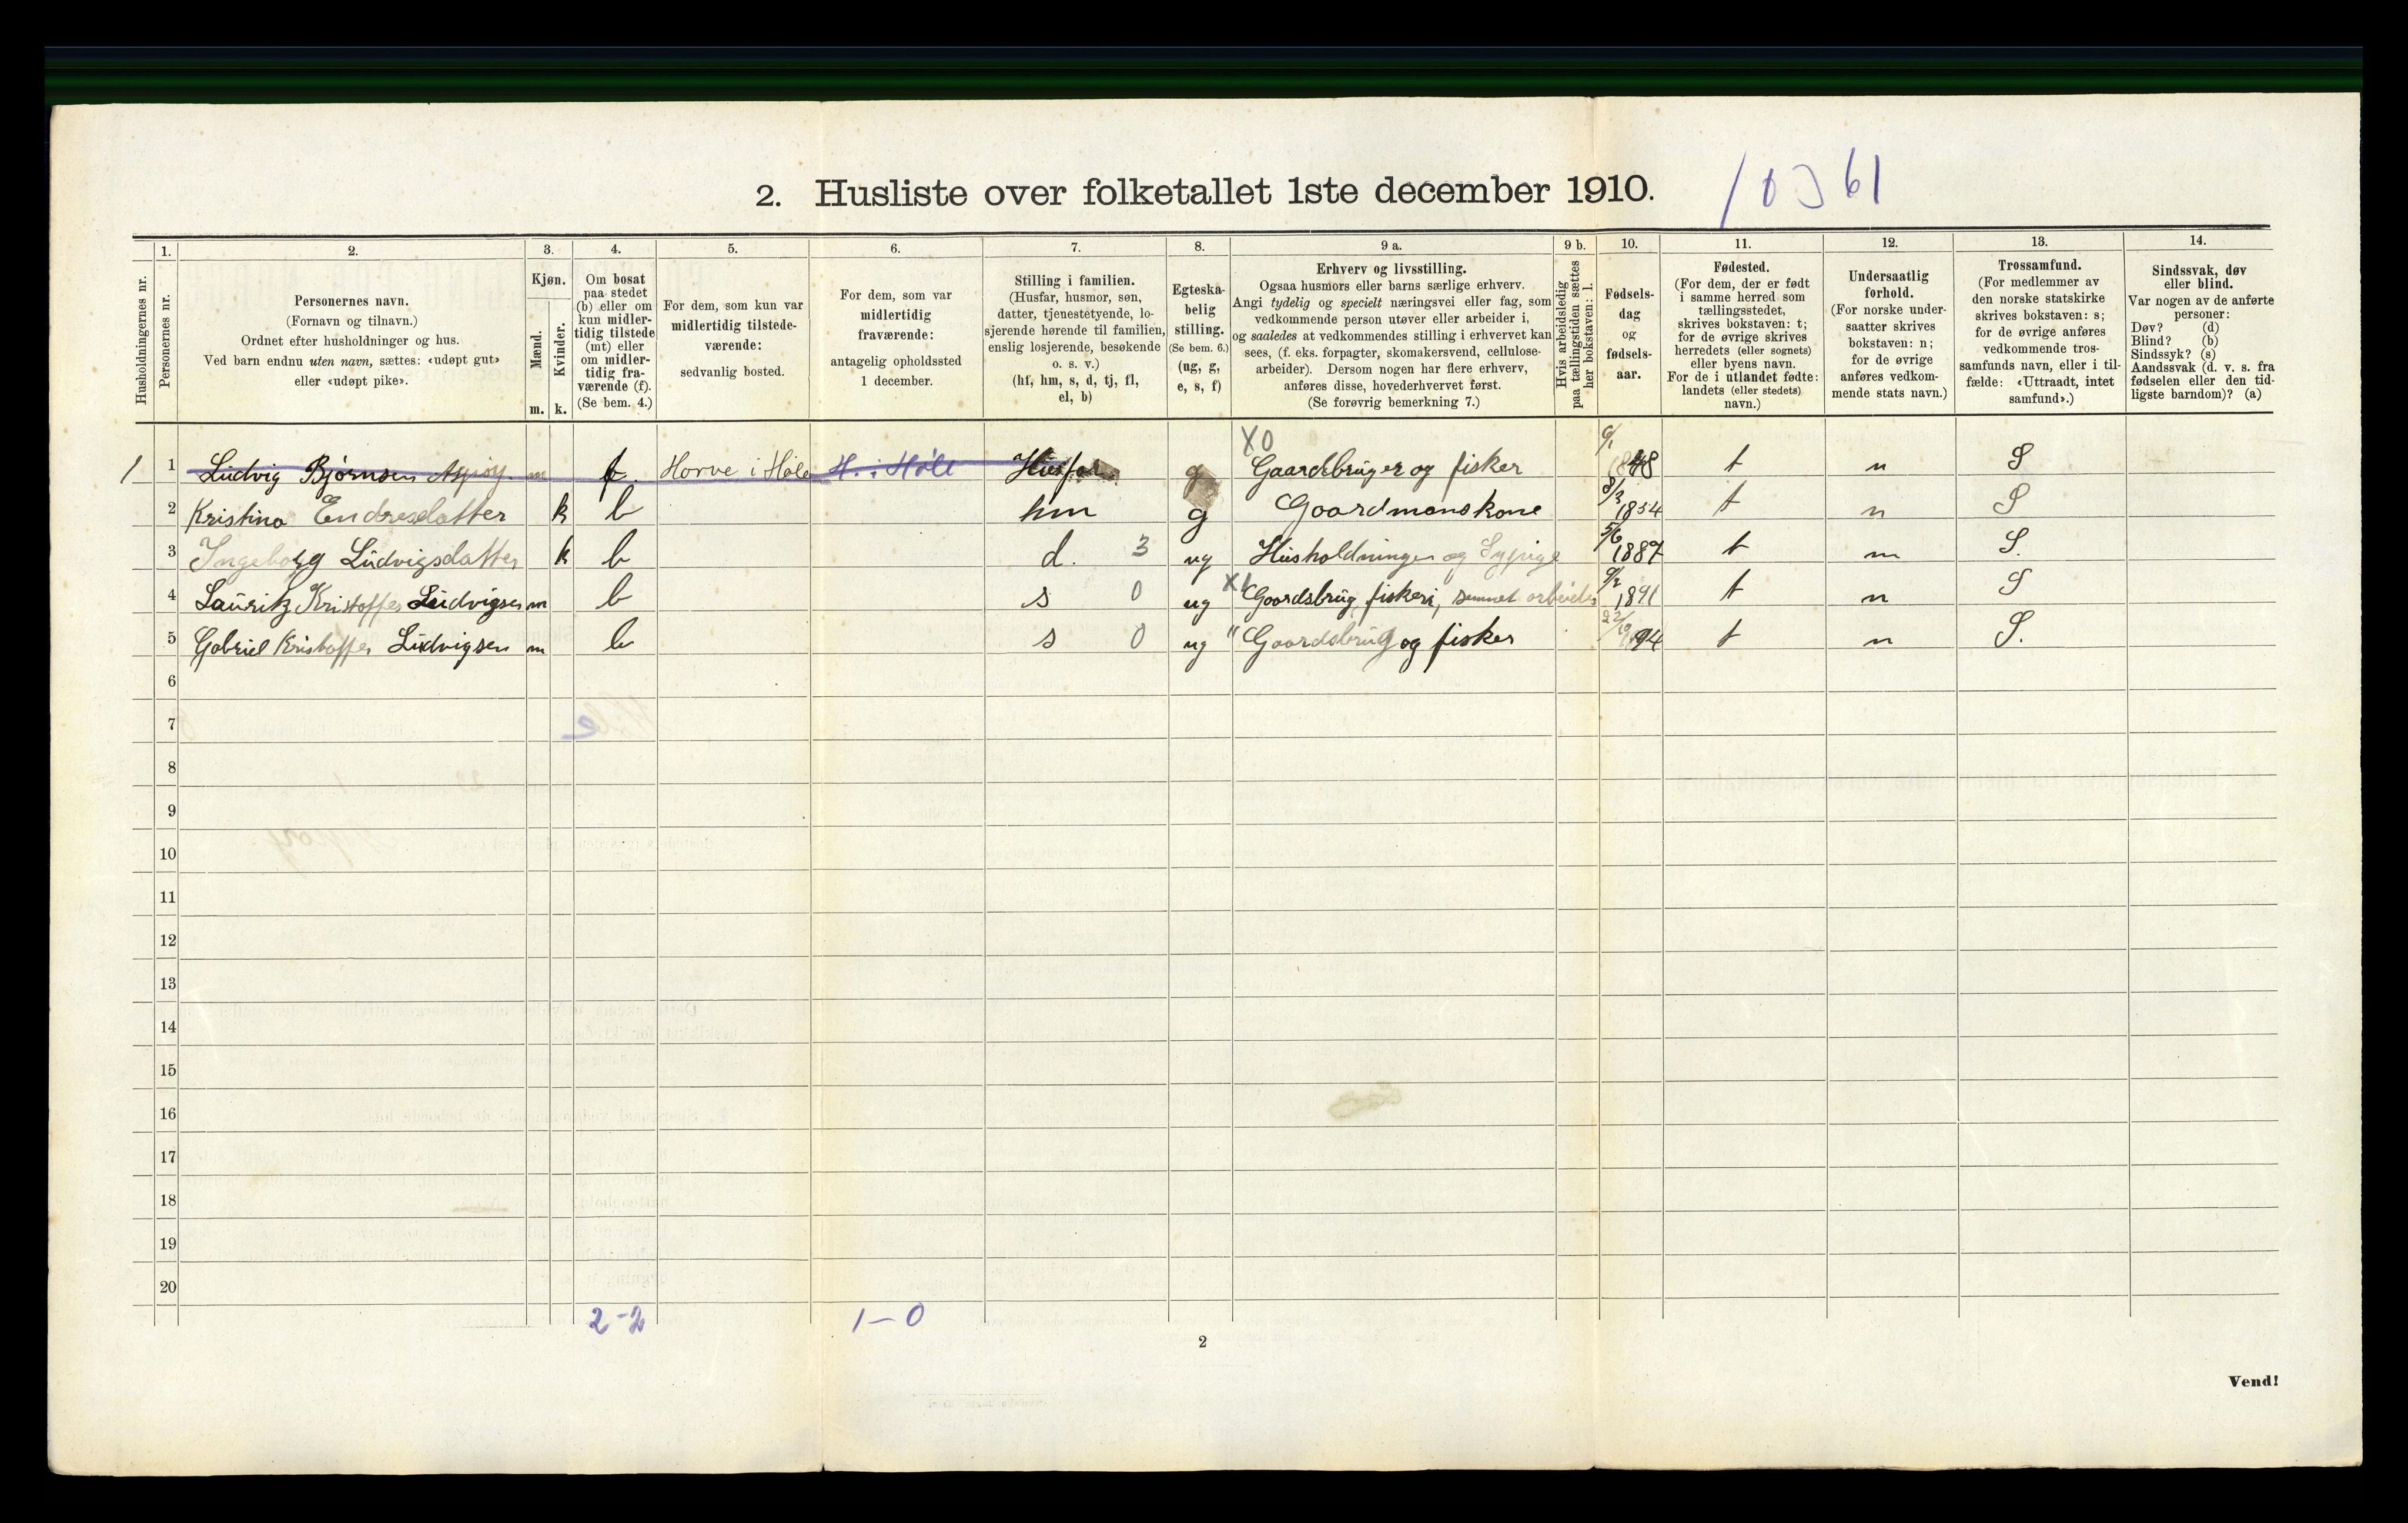 2. Husliste over folketallet 1ste december 1910. 10361
Husholdningernes nr.
1.
Personernes nr.
2.
Personernes navn.
(Fornavn og tilnavn.)
Ordnet efter husholdninger og hus.
Ved barn endnu uten navn, sættes: «udøpt gut»
eller «udøpt pike».
3.
Kjøn.
Mænd.
Kvinder.
m. k.
4.
Om bosat
paa stedet
(b) eller om
kun midler-
tidig tilstede
(mt) eller
om midler-
tidig fra-
værende (f).
(Se bem. 4.)
5.
For dem, som kun var
midlertidig tilstede-
værende:
sedvanlig bosted.
6.
For dem, som var
midlertidig
fraværende:
antagelig opholdssted
1 december.
7.
Stilling i familien.
(Husfar, husmor, søn,
datter, tjenestetyende, lo-
sjerende hørende til familien,
enslig losjerende, besøkende
o. s. v.)
(hf, hm, s, d, tj, fl,
el, b)
8.
Egteska-
belig
stilling.
(Se bem. 6.)
(ug, g,
e, s, f)
9 a.
Erhverv og livsstilling.
Ogsaa husmors eller barns særlige erhverv.
Angi tydelig og specielt næringsvei eller fag, som
vedkommende person utøver eller arbeider i,
og saaledes at vedkommendes stilling i erhvervet kan
sees, (f. eks. forpagter, skomakersvend, cellulose-
arbeider). Dersom nogen har flere erhverv,
anføres disse, hovederhvervet først.
(Se forøvrig bemerkning 7.)
9 b.
Hvis arbeidsledig
paa tællingstiden sættes
her bokstaven: l.
10.
Fødsels-
dag
og
fødsels-
aar.
11.
Fødested.
(For dem, der er født
i samme herred som
tællingsstedet,
skrives bokstaven: t;
for de øvrige skrives
herredets (eller sognets)
eller byens navn.
For de i utlandet fødte:
landets (eller stedets)
navn.)
12.
Undersaatlig
forhold.
(For norske under-
saatter skrives
bokstaven: n;
for de øvrige
anføres vedkom-
mende stats navn.)
13.
Trossamfund.
(For medlemmer av
den norske statskirke
skrives bokstaven: s;
for de øvrige anføres
vedkommende tros-
samfunds navn, eller i til-
fælde: «Uttraadt, intet
samfund».)
14.
Sindssvak, døv
eller blind.
Var nogen av de anførte
personer:
Døv? (d)
Blind? (b)
Sindssyk? (s)
Aandssvak (d. v. s. fra
fødselen eller den tid-
ligste barndom)? (a)
1 1 Ludvig Bjørnsen Aspøy m f. Horve i Høle H. i Høle Husfar g X0 Gaardsbruger og fisker 9/1 1848 t n S
2 Kristina Endresdatter k b hm g Goardmanskone 8/3 1854 t n S
3 Ingeborg Ludvigsdatter k b d. 3 ug Husholdningen og Sypige 5/6 1887 t n S.
4 Lauritz Kristoffer Ludvigsen m b s 0 ug Goardsbrug, fiskeri, arbeider 9/2 1891 t n S
5 Gabriel Kristoffer Ludvigsen m b s 0 ug " Goardsbrug og fisker 94 t n S.
6
7
8
9
10
11
12
13
14
15
16
17
18
19
20
2-2 1-0
2
Vend!